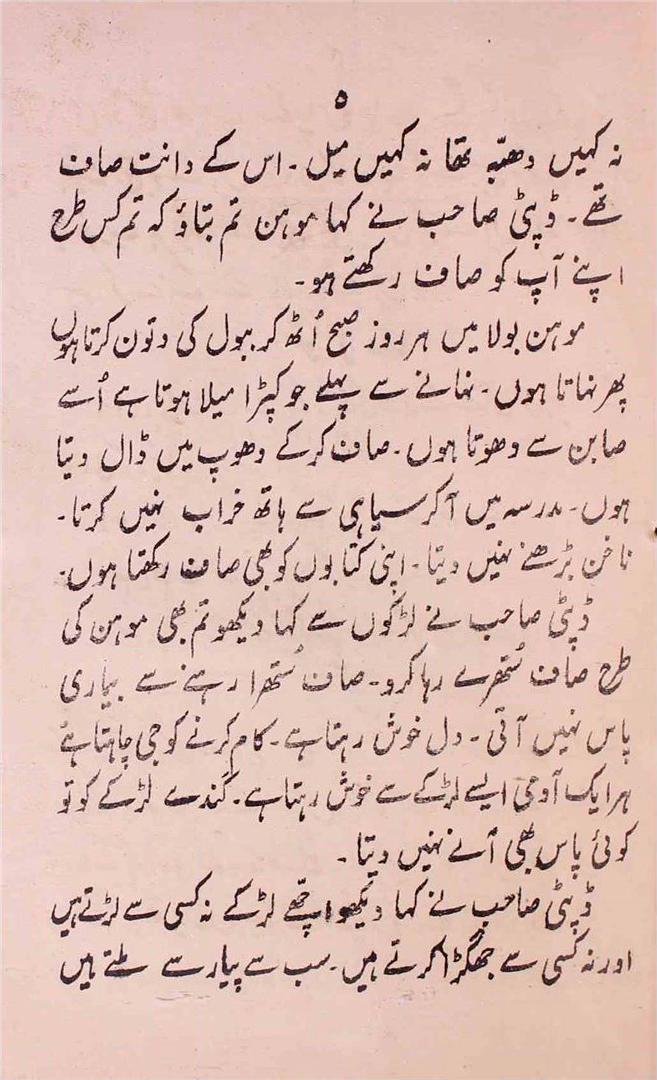 ۵
نہ کہیں دھبّہ تھا نہ کہیں میل ۔ اس کے دانت صاف
تھے ۔ ڈپٹی صاحب نے کہا موہن تم بتاؤ کہ تم کس طرح
اپنے آپ کو صاف رکھتے ہو ۔
موہن بولا میں ہر روز صبح اُٹھ کر ببول کی دتون کرتا ہوں
پھر نہاتا ہوں ۔ نہانے سے پہلے جو کپڑا میلا ہوتا ہے اُسے
صابن سے دھوتا ہوں ۔ صاف کرکے دھوپ میں ڈال دیتا
ہوں ۔ مدرسہ میں آکر سیاہی سے ہاتھ خراب نہیں کرتا ۔
ناخن بڑھنے نہیں دیتا ۔ اپنی کتابوں کو بھی صاف رکھتا ہوں ۔
ڈپٹی صاحب نے لڑکوں سے کہا دیکھو تم بھی موہن کی
طرح صاف سُتھرے رہا کرو ۔ صاف سُتھرا رہنے سے بیماری
پاس نہیں آتی ۔ دل خوش رہتا ہے ۔ کام کرنے کو جی چاہتا ہے
ہر ایک آدمی ایسے لڑکے سے خوش رہتا ہے ۔ گندے لڑکے کو تو
کوئی پاس بھی آنے نہیں دیتا ۔
ڈپٹی صاحب نے کہا دیکھو اچھّے لڑکے نہ کسی سے لڑتے ہیں
اور نہ کسی سے جھگڑا کرتے ہیں ۔ سب سے پیار سے ملتے ہیں